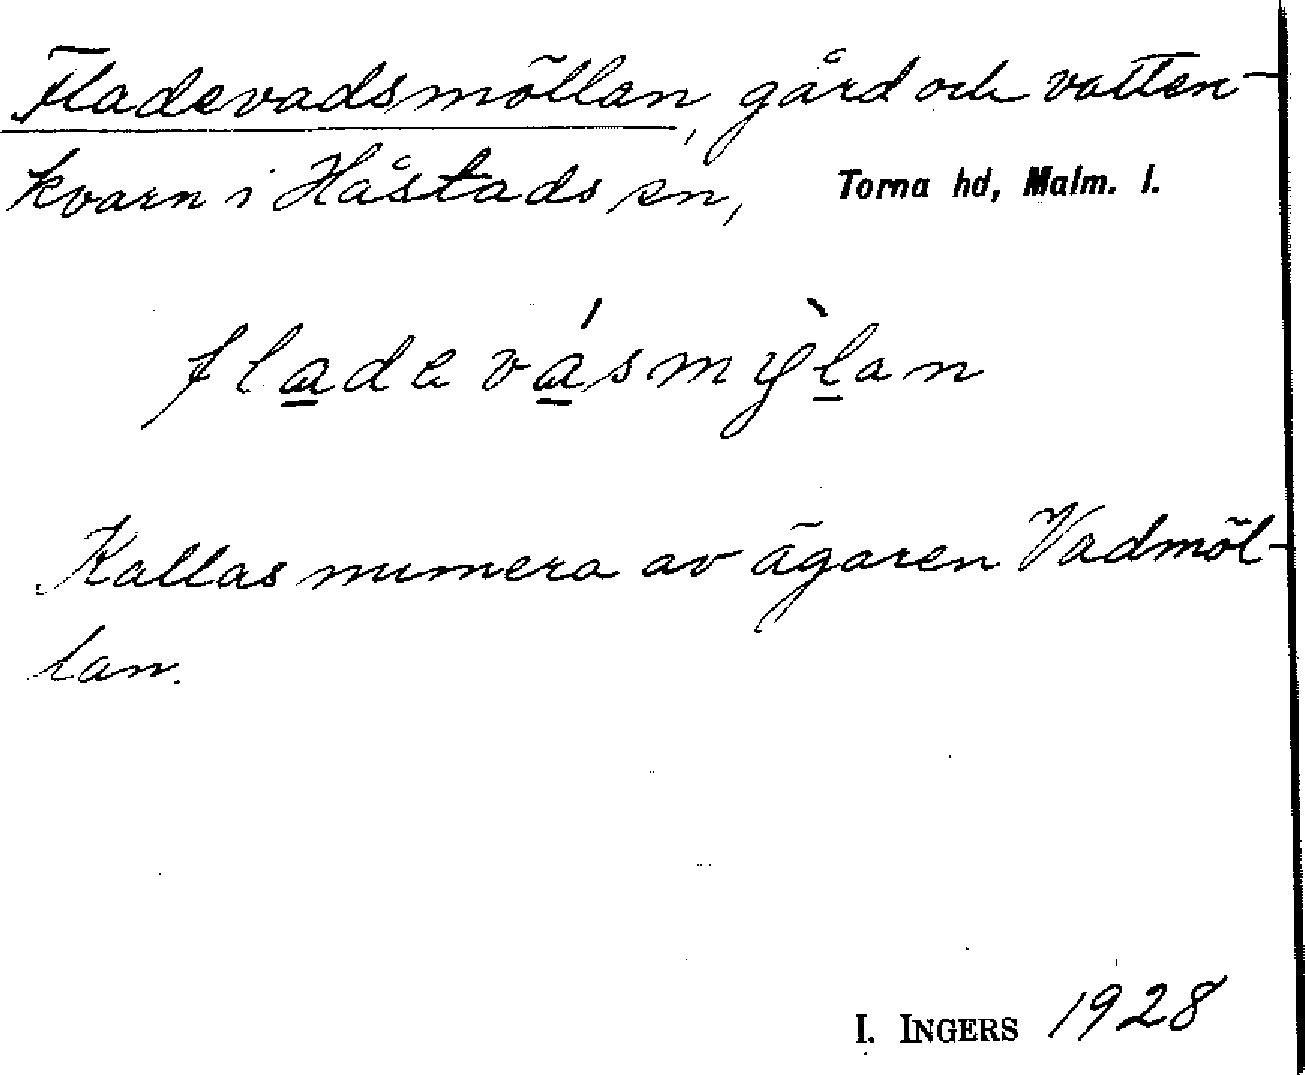 Fladevadsmöllan, gård och vatten-
kvarn i Håstads sn, Torna hd, Malm. l.
fladevásmỳlan
Kallas numera av ägaren Vadmöl-
lan.
I. INGERS 1928